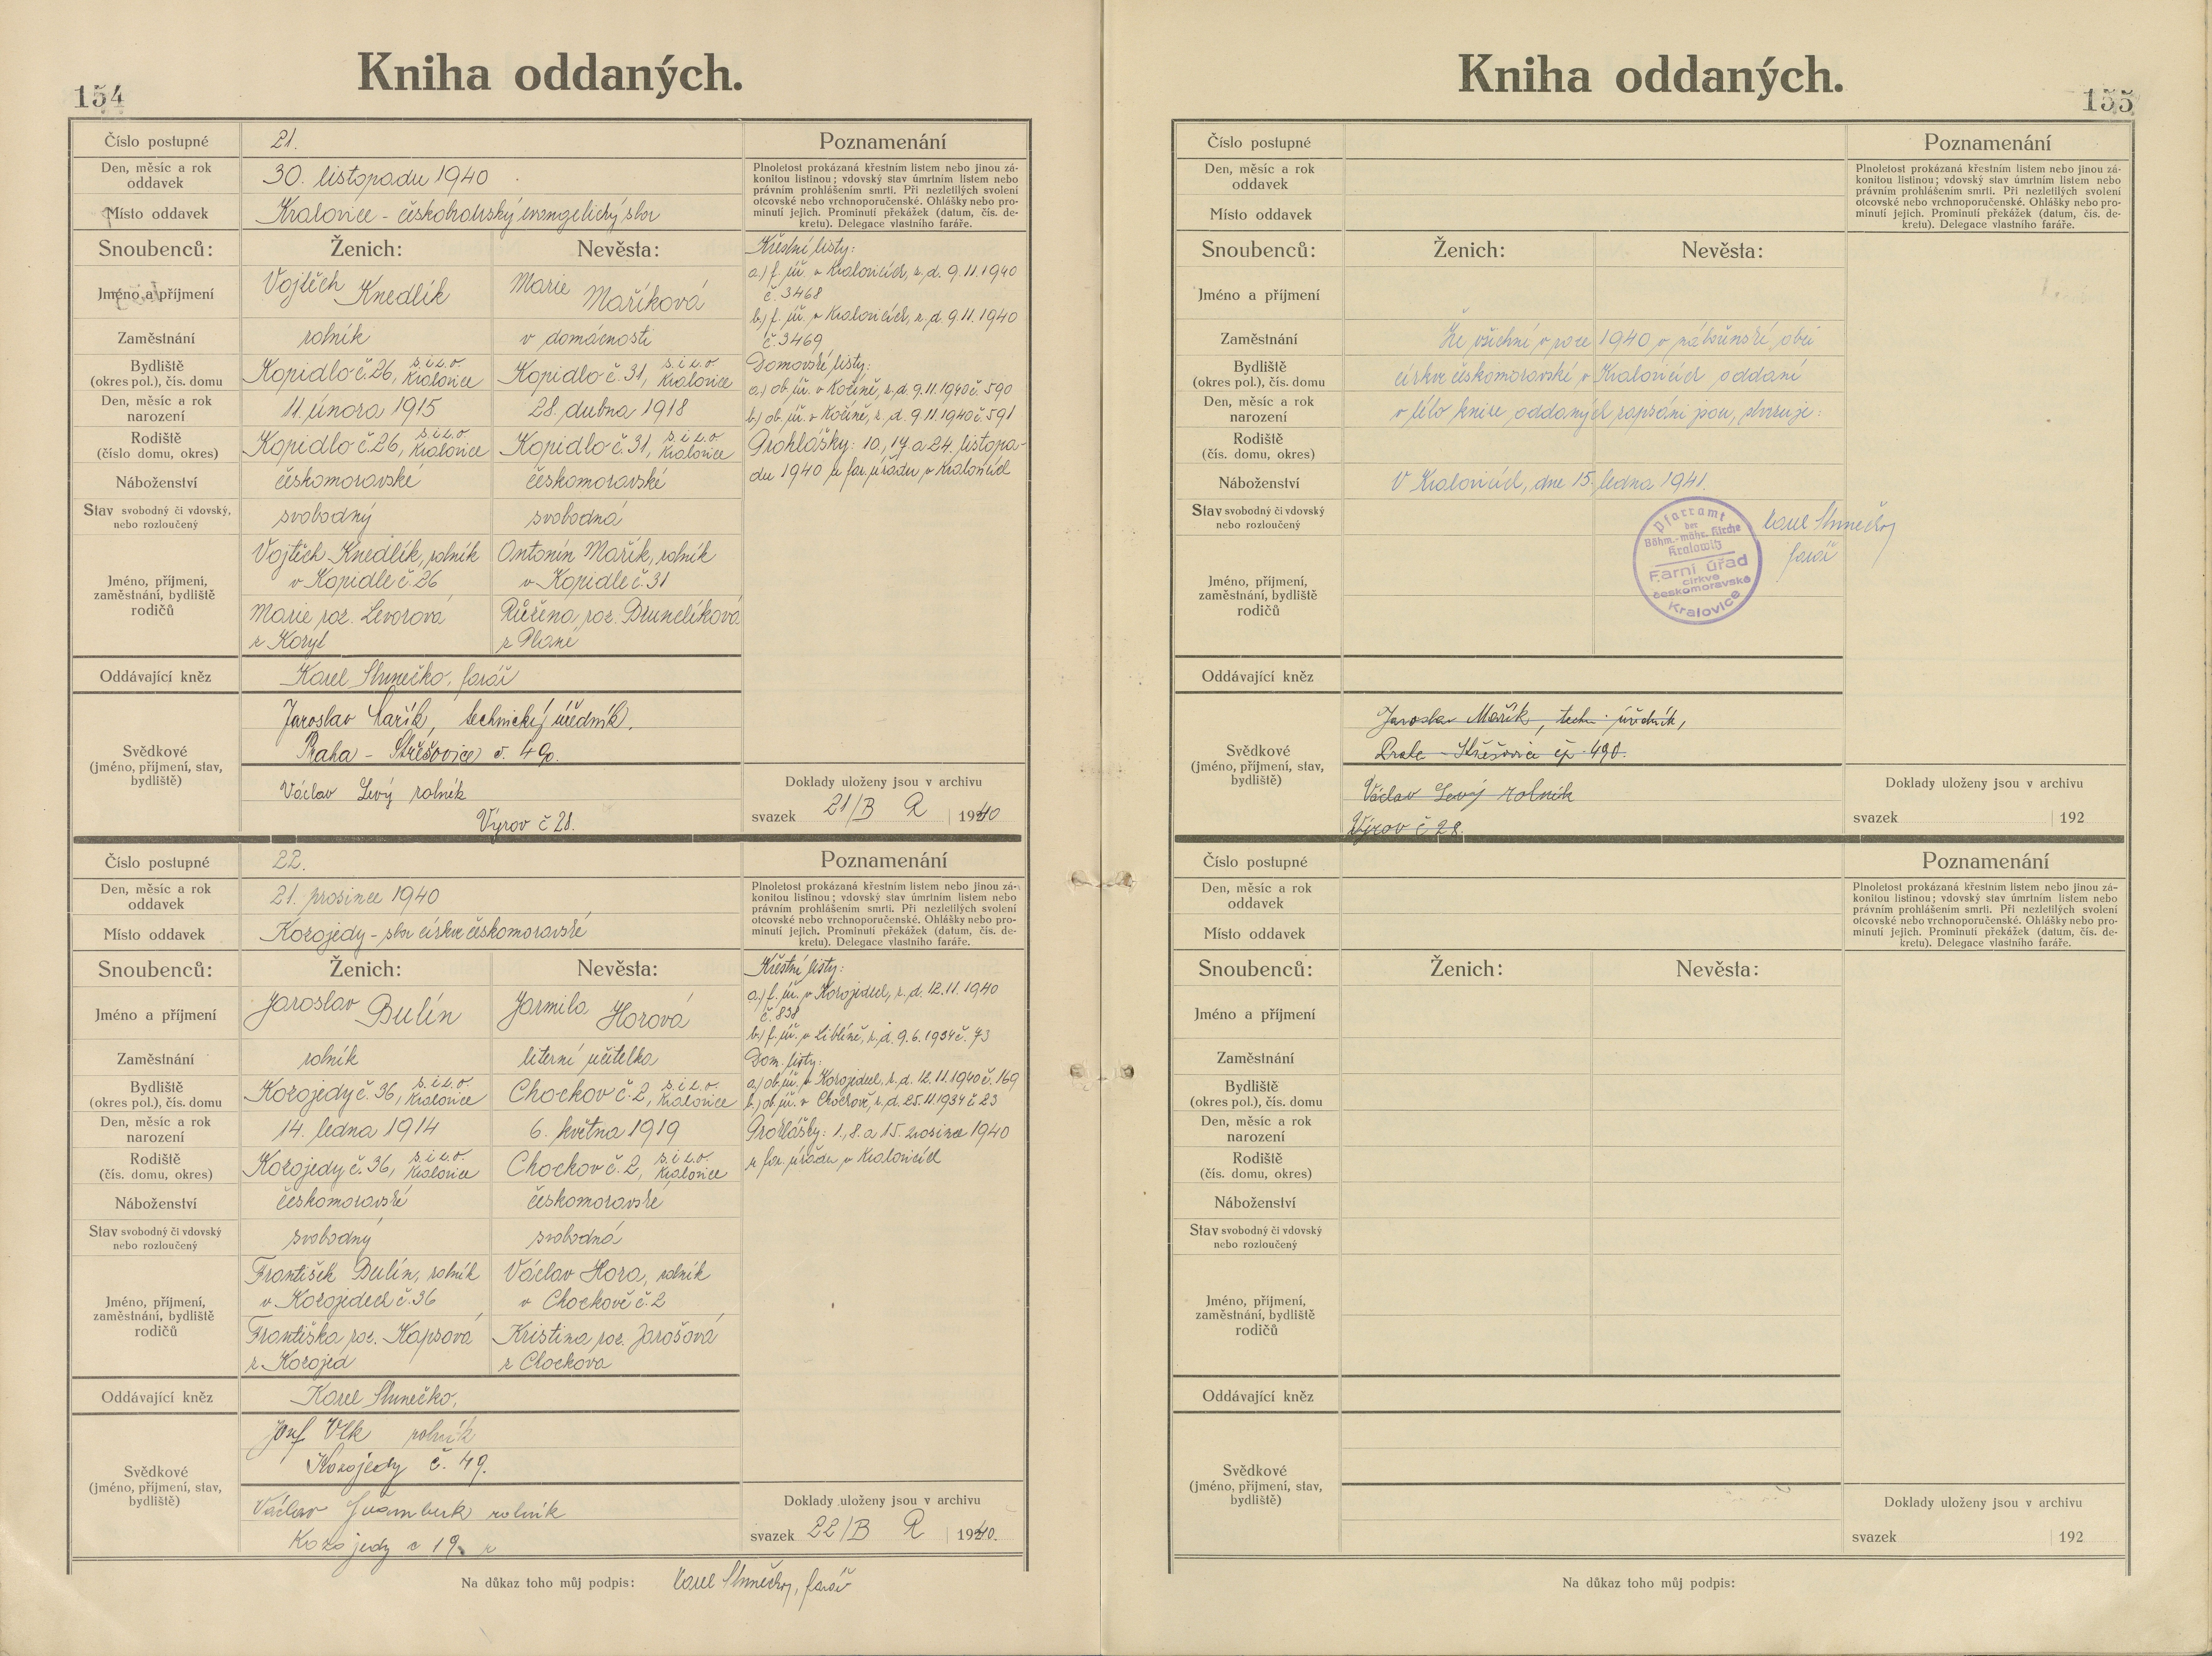 154
Kniha oddaných.
Číslo postupné 21.
Poznamenání
Den, měsíc a rok oddavek 30. listopadu 1940
Místo oddavek Kralovice - českobratrský evangelický sbor
Plnoletost prokázaná křestním listem nebo jinou zá-
konitou listinou; vdovský stav úmrtním listem nebo
právním prohlášením smrti. Při nezletilých svolení
otcovské nebo vrchnoporučenské. Ohlášky nebo pro-
minutí jejich. Prominutí překážek (datum, čís. de-
kretu). Delegace vlastního faráře.
Snoubenců: Ženich: Nevěsta:
Jméno a příjmení Vojtěch Knedlík Marie Maříková
Zaměstnání rolník v domácnosti
Bydliště (okres pol.), čís. domu Kopidlo č. 26, s. i z. o. Kralovice Kopidlo č. 31, s. i z. o. Kralovice
Den, měsíc a rok narození 11. února 1915 28. dubna 1918
Rodiště (číslo domu, okres) Kopidlo č. 26, s. i z. o. Kralovice Kopidlo č. 31, s. i z. o. Kralovice
Náboženství českomoravské českomoravské
Stav svobodný či vdovský, nebo rozloučený svobodný svobodná
Jméno, příjmení, zaměstnání, bydliště rodičů
Vojtěch Knedlík, rolník
v Kopidle č. 26
Marie roz. Levorová
Antonín Mařík, rolník
v Kopidle č. 31
Růžena roz.
z Plané
Křestní listy:
a.) f. úř. v Kralovicích, z. d. 9.11.1940
č. 3468
b.) f. úř. v Kralovicích, z. d. 9.11.1940
č. 3469
Domovské listy:
a.) ob. úř. v Kočíně, z. d. 9.11.1940 č. 590
b.) ob. úř. v Kočíně, z. d. 9.11.1940 č. 591
Prohlášky: 10., 17. a 24. listopa-
du 1940 u far. úřadu v Kralovicích
Oddávající kněz Karel Slunečko, farář
Svědkové (jméno, příjmení, stav, bydliště)
Jaroslav Mařík, technický úředník,
Praha - Střešovice č. 490.
Václav Levý rolník
Výrov č 28.
Doklady uloženy jsou v archivu
svazek 21/B R 1940
Číslo postupné 22.
Poznamenání
Den, měsíc a rok oddavek 21. prosince 1940
Místo oddavek Kozojedy - sbor církve českomoravské
Plnoletost prokázaná křestním listem nebo jinou zá-
konitou listinou; vdovský stav úmrtním listem nebo
právním prohlášením smrti. Při nezletilých svolení
otcovské nebo vrchnoporučenské. Ohlášky nebo pro-
minutí jejich. Prominutí překážek (datum, čís. de-
kretu). Delegace vlastního faráře.
Snoubenců: Ženich: Nevěsta:
Jméno a příjmení Jaroslav Bulín Jarmila Horová
Zaměstnání rolník literní učitelka
Bydliště (okres pol.), čís. domu Kozojedy č. 36, s. i z. o. Kralovice Chockov č. 2, s. i z. o. Kralovice
Den, měsíc a rok narození 14. ledna 1914 6. května 1919
Rodiště (čís. domu, okres) Kozojedy č. 36, s. i z. o. Kralovice Chockov č. 2, s. i z. o. Kralovice
Náboženství českomoravské českomoravské
Stav svobodný či vdovský nebo rozloučený svobodný svobodná
Jméno, příjmení, zaměstnání, bydliště rodičů
František Bulín, rolník
v Kozojedech č. 36
Františka roz. Kapsová
z Kozojed
Václav Hora, rolník
v Chockově č. 2
Kristina roz. Jarošová
z Chockova
Křestní listy:
a.) f. úř. v Kozojedech, z. d. 12.11.1940
č. 838
b.) f. úř. v Liblíně, z. d. 9.6.1934 č. 73
Dom. listy:
a.) ob. úř. v Kozojedech, z. d. 12.11.1940 č. 169
b.) ob. úř. v Chockově, z. d. 25.11.1934 č. 23
Prohlášky: 1., 8. a 15. prosince 1940
u far. úřadu v Kralovicích
Oddávající kněz Karel Slunečko,
Svědkové (jméno, příjmení, stav, bydliště)
Josef Vlk rolník
Kozojedy č. 49.
Václav rolník
Kozojedy č 19.
Doklady uloženy jsou v archivu
svazek 22/B R 1940.
Na důkaz toho můj podpis: Karel Slunečko, farář
155
Kniha oddaných.
Číslo postupné
Poznamenání
Den, měsíc a rok oddavek
Místo oddavek
Plnoletost prokázaná křestním listem nebo jinou zá-
konitou listinou; vdovský stav úmrtním listem nebo
právním prohlášením smrti. Při nezletilých svolení
otcovské nebo vrchnoporučenské. Ohlášky nebo pro-
minutí jejich. Prominutí překážek (datum, čís. de-
kretu). Delegace vlastního faráře.
Snoubenců: Ženich: Nevěsta:
Jméno a příjmení
Zaměstnání
Bydliště (okres pol.), čís. domu
Den, měsíc a rok narození
Rodiště (čís. domu, okres)
Náboženství
Stav svobodný či vdovský nebo rozloučený
Jméno, příjmení, zaměstnání, bydliště rodičů
Že všichni v roce 1940 v náboženské obci
církve českomoravské v Kralovicích oddaní
v této knize oddaných zapsáni jsou, stvrzuje:
V Kralovicích, dne 15. ledna 1941.
Karel Slunečko
farář
Pfarramt
der
Böhm.-mähr. Kirche
Kralowitz
Farní úřad
církve
českomoravské
Kralovice
Oddávající kněz
Svědkové (jméno, příjmení, stav, bydliště)
Jaroslav Mařík, techn. úředník,
Praha - Střešovice čp. 490.
Václav Levý rolník
Výrov č 28.
Doklady uloženy jsou v archivu
svazek 192
Číslo postupné
Poznamenání
Den, měsíc a rok oddavek
Místo oddavek
Plnoletost prokázaná křestním listem nebo jinou zá-
konitou listinou; vdovský stav úmrtním listem nebo
právním prohlášením smrti. Při nezletilých svolení
otcovské nebo vrchnoporučenské. Ohlášky nebo pro-
minutí jejich. Prominutí překážek (datum, čís. de-
kretu). Delegace vlastního faráře.
Snoubenců: Ženich: Nevěsta:
Jméno a příjmení
Zaměstnání
Bydliště (okres pol.), čís. domu
Den, měsíc a rok narození
Rodiště (čís. domu, okres)
Náboženství
Stav svobodný či vdovský nebo rozloučený
Jméno, příjmení, zaměstnání, bydliště rodičů
Oddávající kněz
Svědkové (jméno, příjmení, stav, bydliště)
Doklady uloženy jsou v archivu
svazek 192
Na důkaz toho můj podpis: